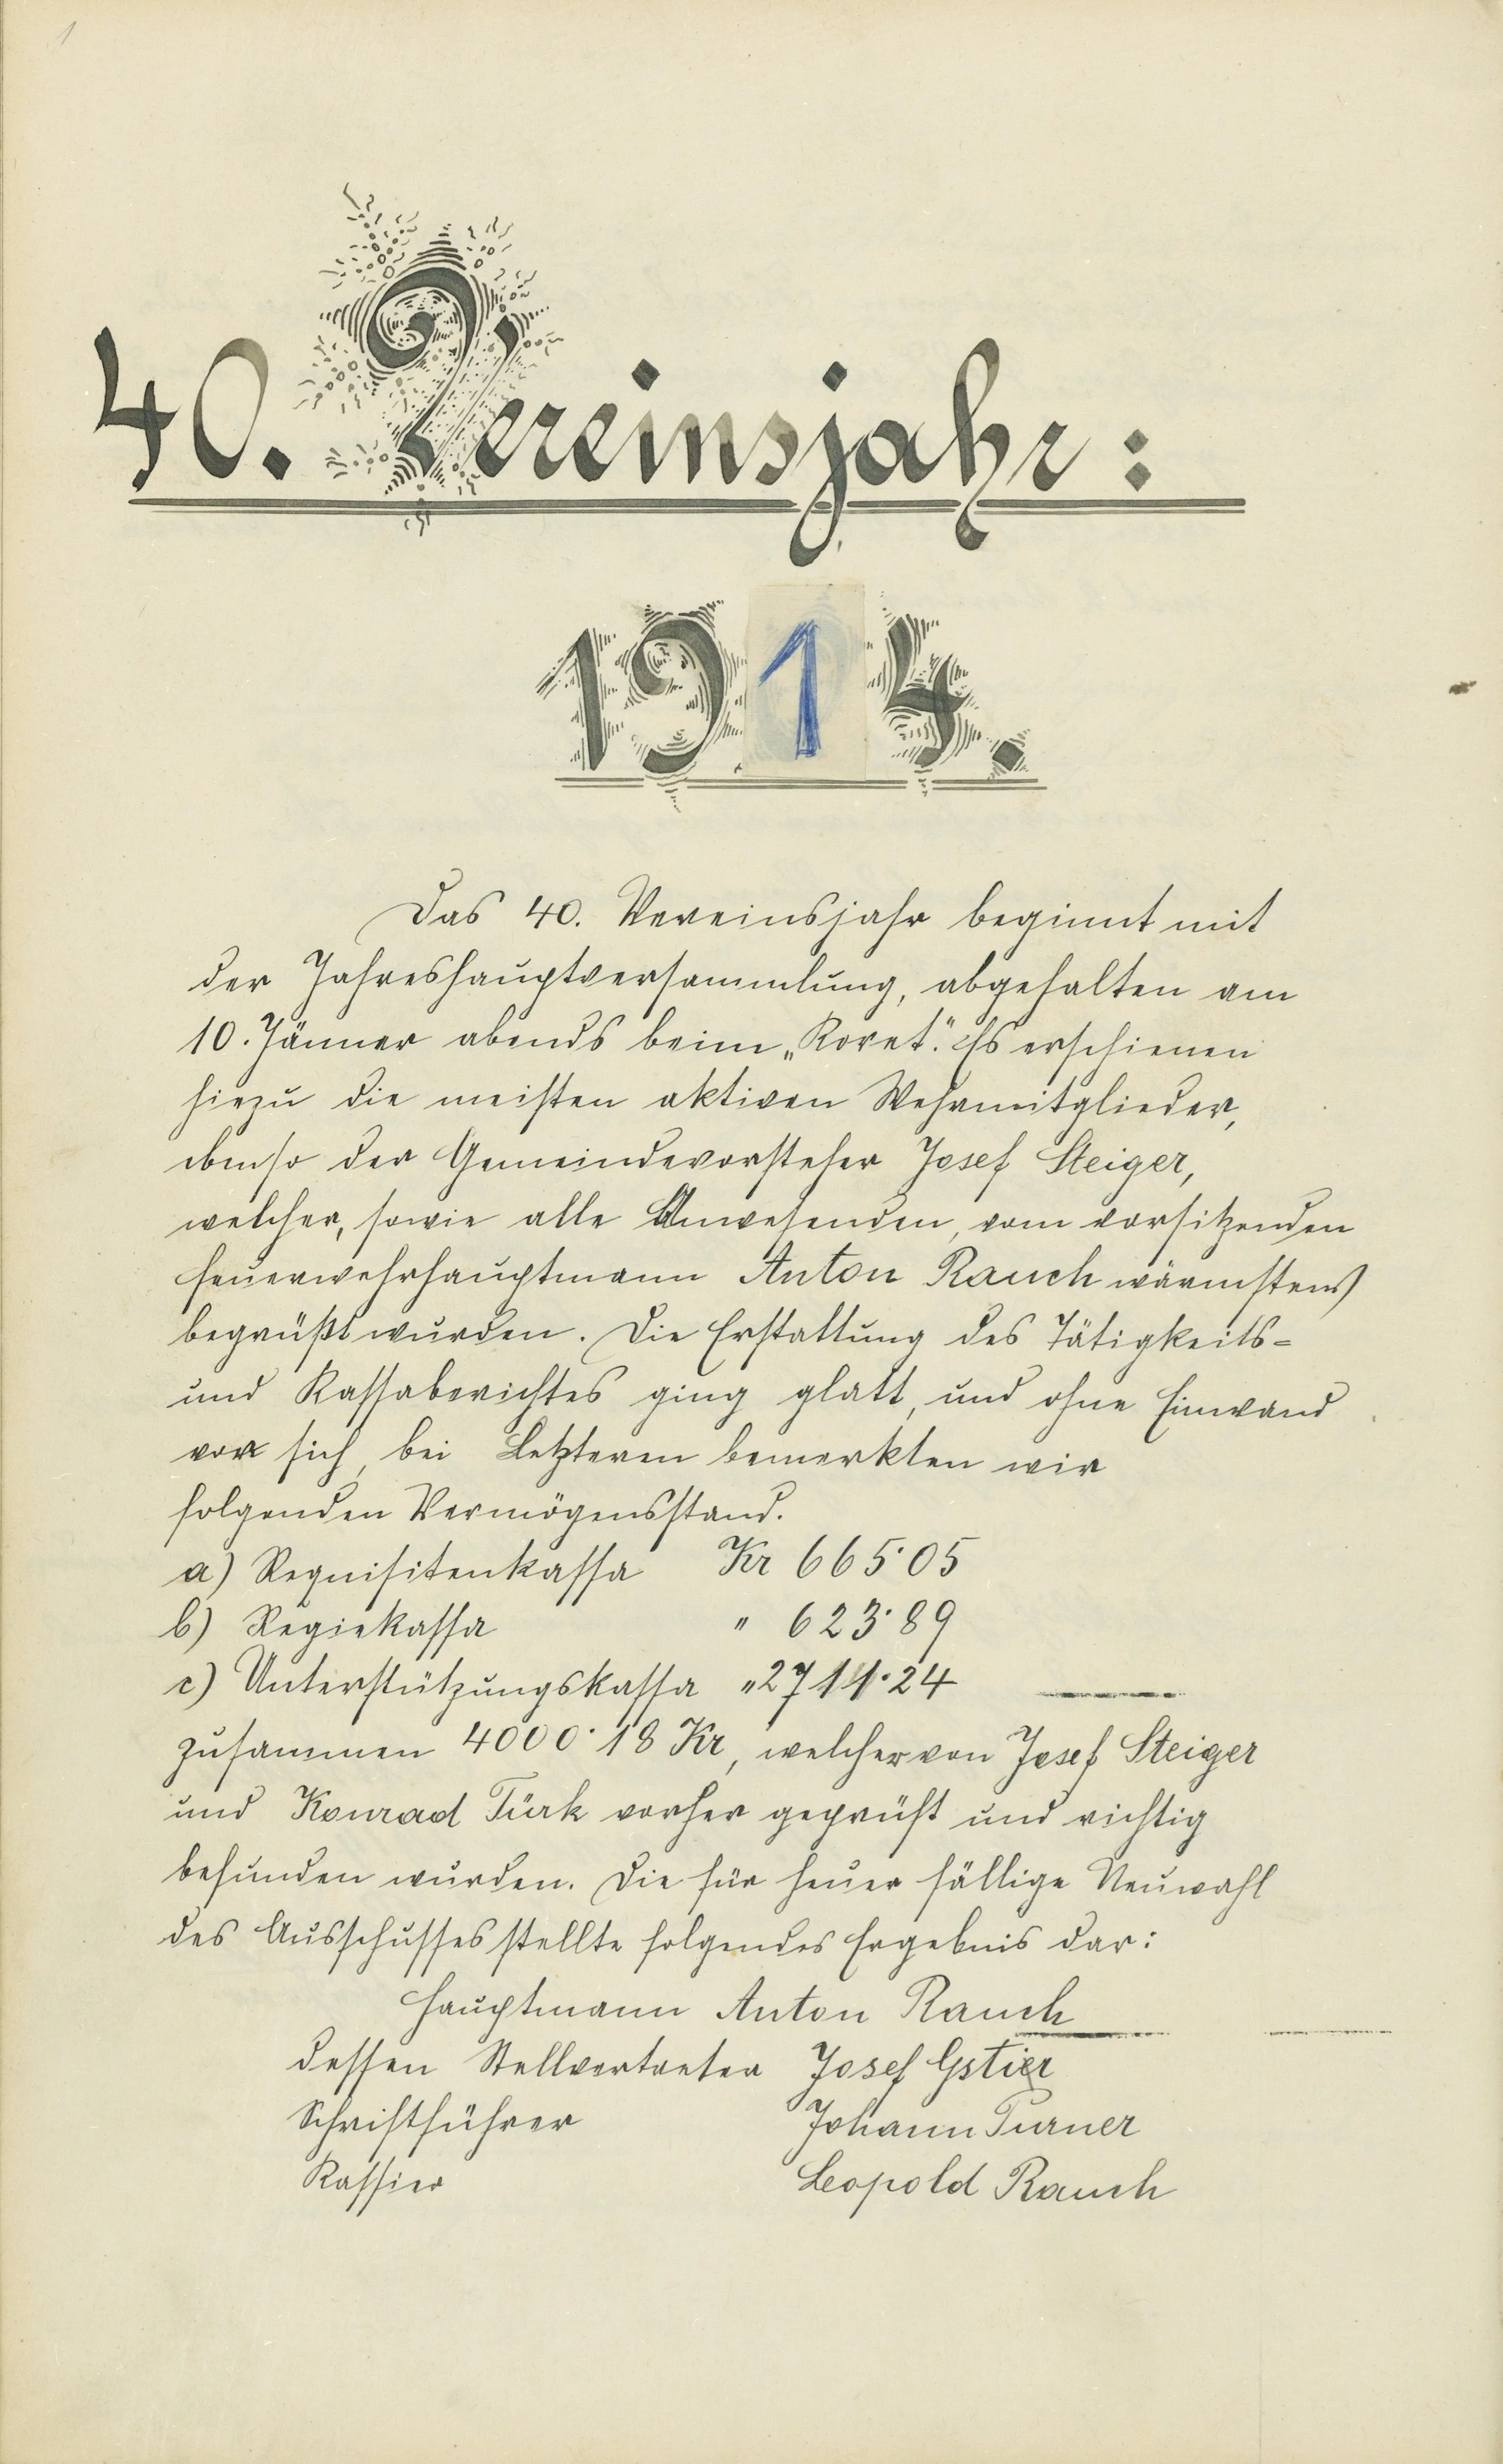 1
40. Vereinsjahr:
1914.
Das 40. Vereinsjahr beginnt mit
der Jahreshauptversammlung, abgehalten am
10. Jänner abends beim „Koret". Es erschienen
hiezu die meisten aktiven Wehrmitglieder,
ebenso der Gemeindevorsteher Josef Steiger,
welcher, sowie alle Anwesenden, vom vorsitzenden
Feuerwehrhauptmann Anton Rauch wärmstens
begrüßt wurden. Die Erstattung des Tätigkeits-
und Kassaberichtes ging glatt, und ohne Einwand
vor sich, bei Letzteren bemerkten wir
folgenden Vermögensstand.
a) Requisitenkassa Kr 665·05
b) Regiekassa " 623·89
c) Unterstützungskassa " 2711·24
zusammen 4000·18 Kr, welcher von Josef Steiger
und Konrad Türk vorher geprüft und richtig
befunden wurden. Die für heuer fällige Neuwahl
des Ausschusses stellte folgendes Ergebnis dar:
Hauptmann Anton Rauch
dessen Stellvertreter Josef Gstier
Schriftführer Johann Purner
Kassier Leopold Rauch